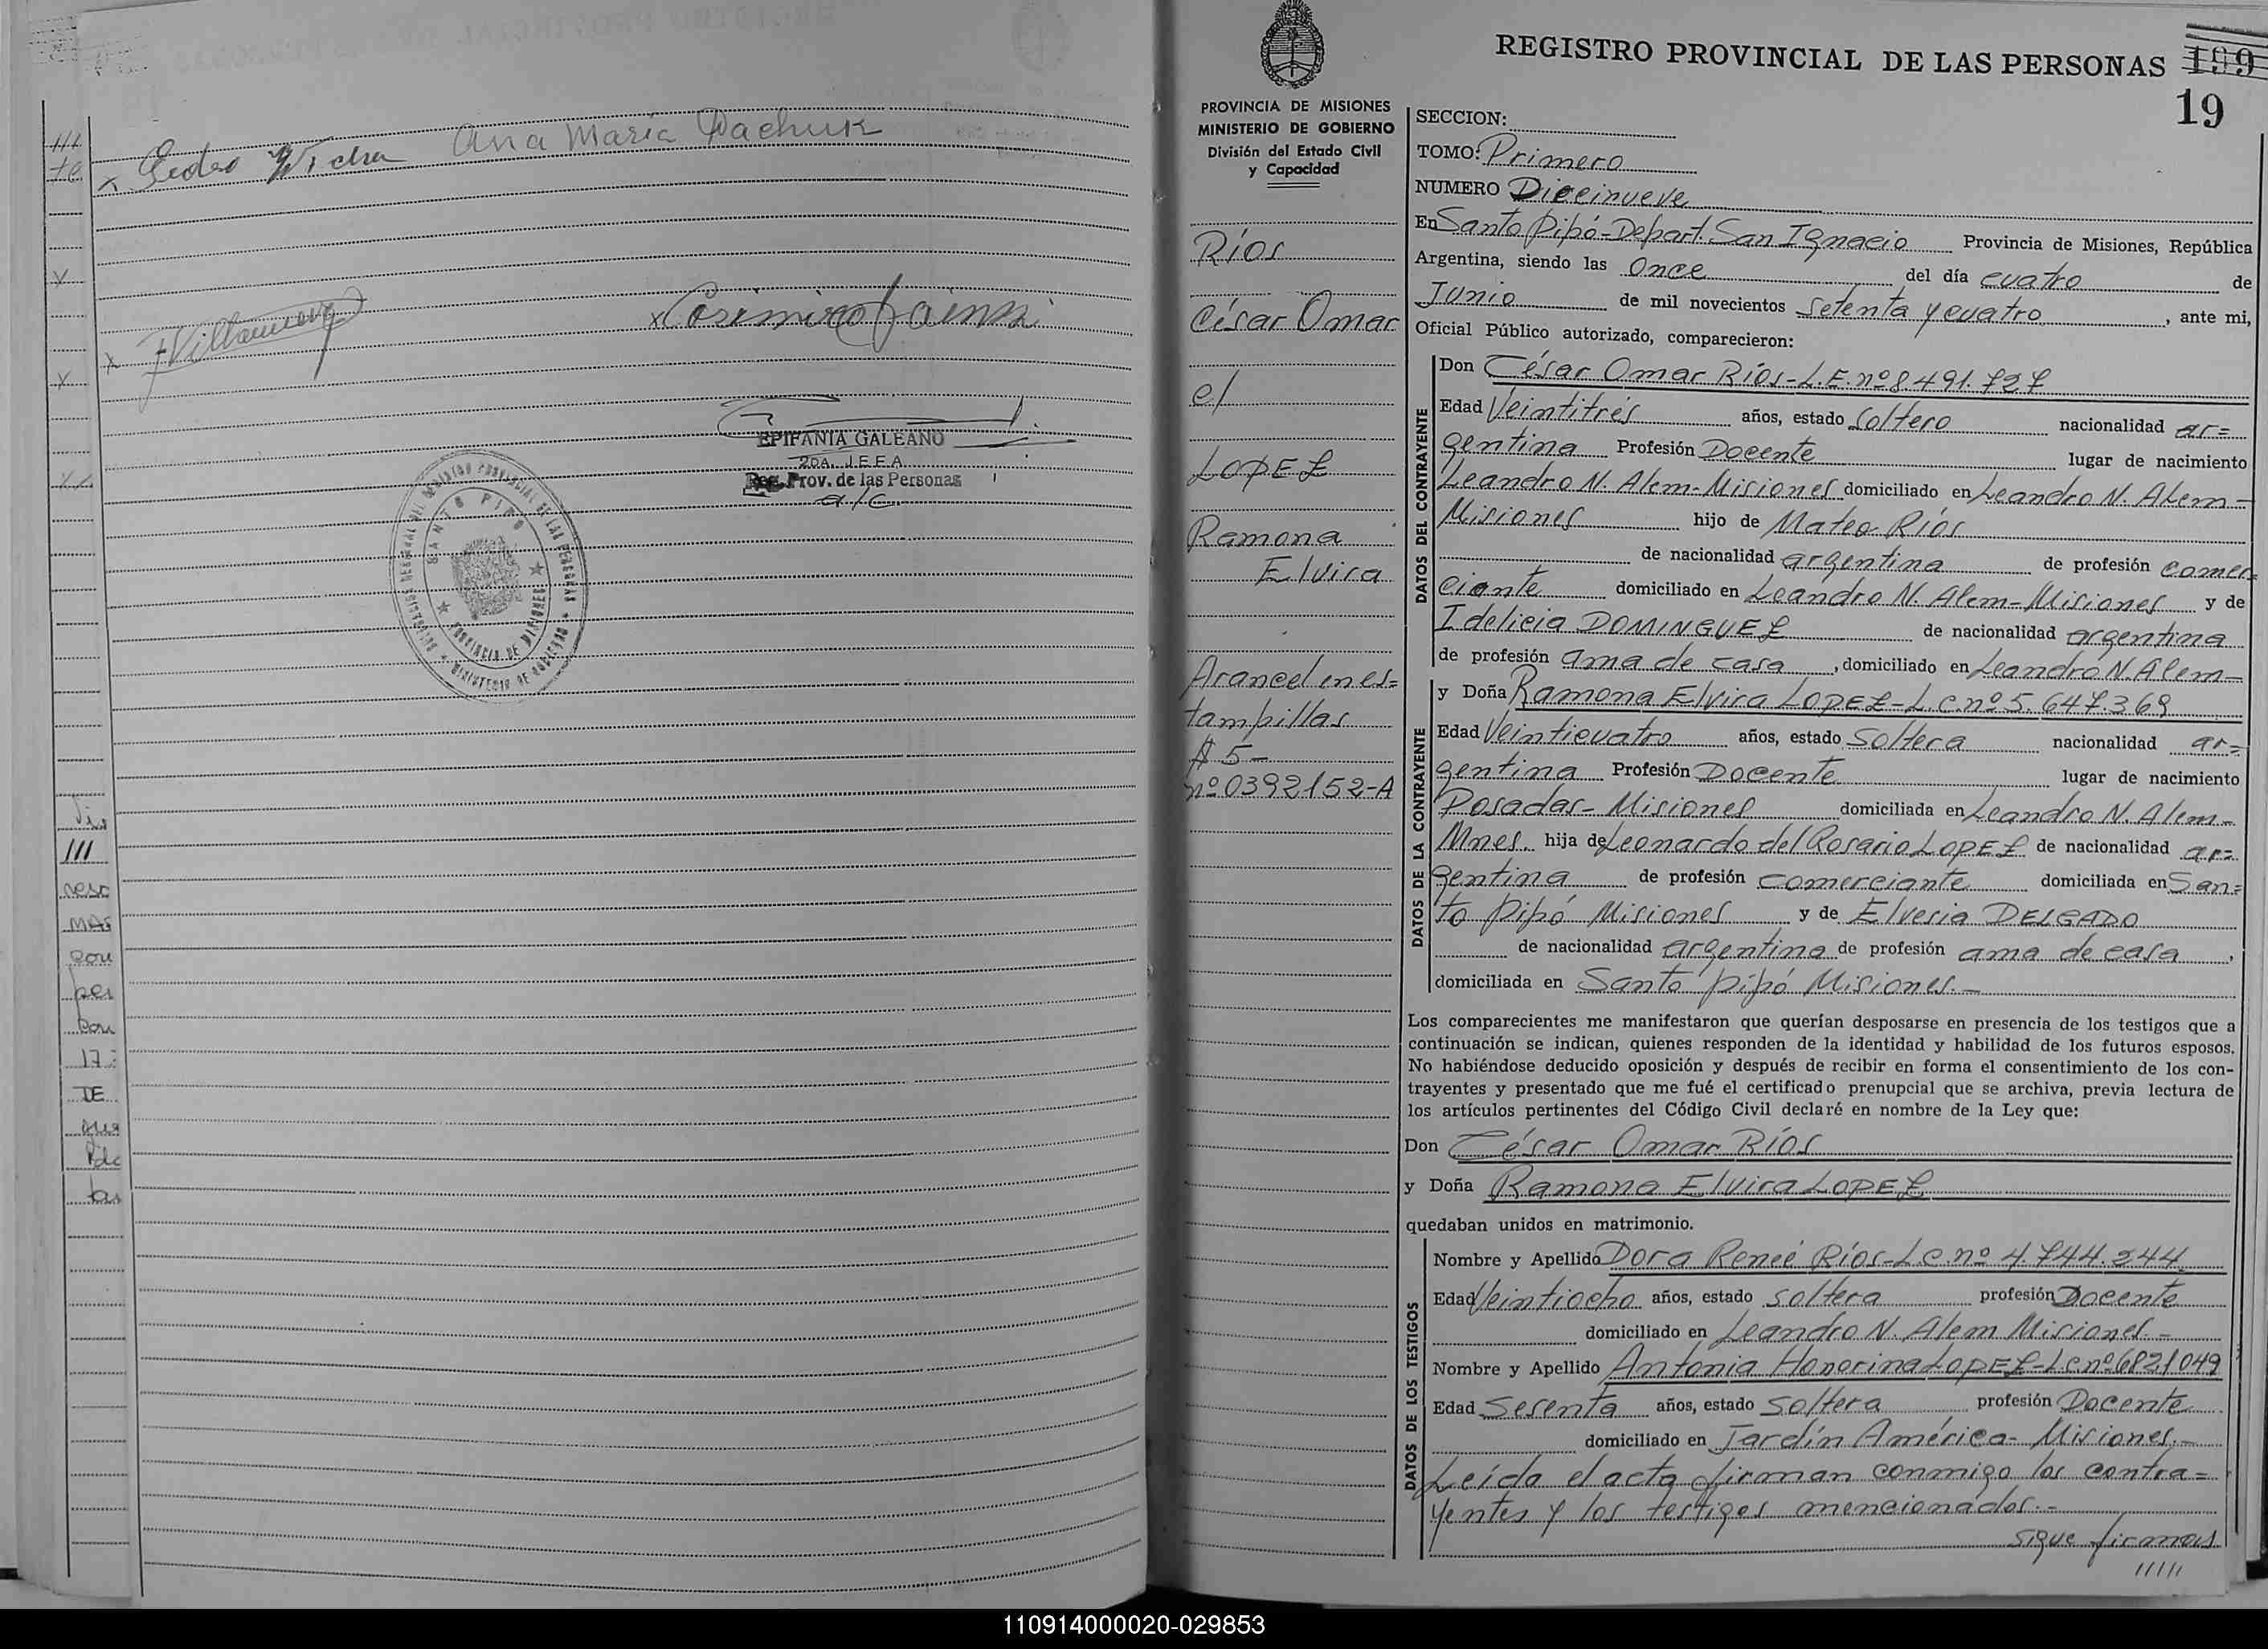 Pedro Wicha Ana Maria Pachuk
x FVillanueva
x Casimiro Jainski
EPIFANIA GALEANO
2DA. JEFA
Reg. Prov. de las Personas
a/c.
SANTO PIPO
PROVINCIA DE MISIONES
REGISTRO PROVINCIAL DE LAS PERSONAS 199
19
PROVINCIA DE MISIONES
MINISTERIO DE GOBIERNO
División del Estado Civil
y Capacidad
Ríos
César Omar
c/
LOPEZ
Ramona
Elvira
Arancel en es=
tampillas
$ 5-
nº 0392152-A
SECCION:
TOMO: Primero
NUMERO Diecinueve
En Santo Pipó-Depart. San Ignacio Provincia de Misiones, República
Argentina, siendo las Once del día cuatro de
Junio de mil novecientos Setenta y cuatro, ante mi,
Oficial Público autorizado, comparecieron:
DATOS DEL CONTRAYENTE
Don César Omar Ríos-L.E.nº 8.491.727
Edad Veintitrés años, estado Soltero nacionalidad ar=
gentina Profesión Docente lugar de nacimiento
Leandro N. Alem-Misiones domiciliado en Leandro N. Alem-
Misiones hijo de Mateo Ríos
de nacionalidad argentina de profesión comer=
ciante domiciliado en Leandro N. Alem-Misiones y de
Idelicia DOMINGUEZ de nacionalidad argentina
de profesión ama de casa, domiciliado en Leandro N. Alem-
DATOS DE LA CONTRAYENTE
y Doña Ramona Elvira LOPEZ-L.C.nº 5.647.369
Edad Veinticuatro años, estado Soltera nacionalidad ar=
gentina Profesión Docente lugar de nacimiento
Posadas-Misiones domiciliada en Leandro N. Alem-
Mnes. hija de Leonardo del Rosario LOPEZ de nacionalidad ar=
gentina de profesión comerciante domiciliada en San=
to Pipó Misiones y de Elvecia DELGADO
de nacionalidad argentina de profesión ama de casa,
domiciliada en Santo Pipó Misiones.-
Los comparecientes me manifestaron que querían desposarse en presencia de los testigos que a
continuación se indican, quienes responden de la identidad y habilidad de los futuros esposos.
No habiéndose deducido oposición y después de recibir en forma el consentimiento de los con-
trayentes y presentado que me fué el certificado prenupcial que se archiva, previa lectura de
los artículos pertinentes del Código Civil declaré en nombre de la Ley que:
Don César Omar Ríos
y Doña Ramona Elvira LOPEZ
quedaban unidos en matrimonio.
DATOS DE LOS TESTIGOS
Nombre y Apellido Dora Reneé Ríos-L.C.nº 4.744.244
Edad Veintiocho años, estado soltera profesión Docente
domiciliado en Leandro N. Alem Misiones.-
Nombre y Apellido Antonia Honorina LOPEZ-L.C.nº 6821049
Edad Sesenta años, estado soltera profesión Docente
domiciliado en Jardín América-Misiones.-
Leída el acta firman conmigo los contra=
yentes y los testigos mencionados.-
Sigue firmas
/////
110914000020-029853